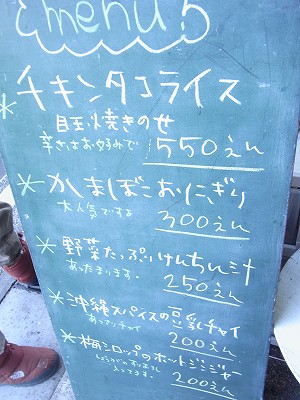 menu
* チキンタコライス
目玉焼きのせ
辛さはお好みで 550えん
* かまぼこおにぎり
大人気ですよ 300えん
* 野菜たっぷりけんちん汁
あったまります。 250えん
* 沖縄スパイスの豆乳チャイ
あっさりチャイ 200えん
* 梅シロップのホットジンジャー
入ってます。 200えん